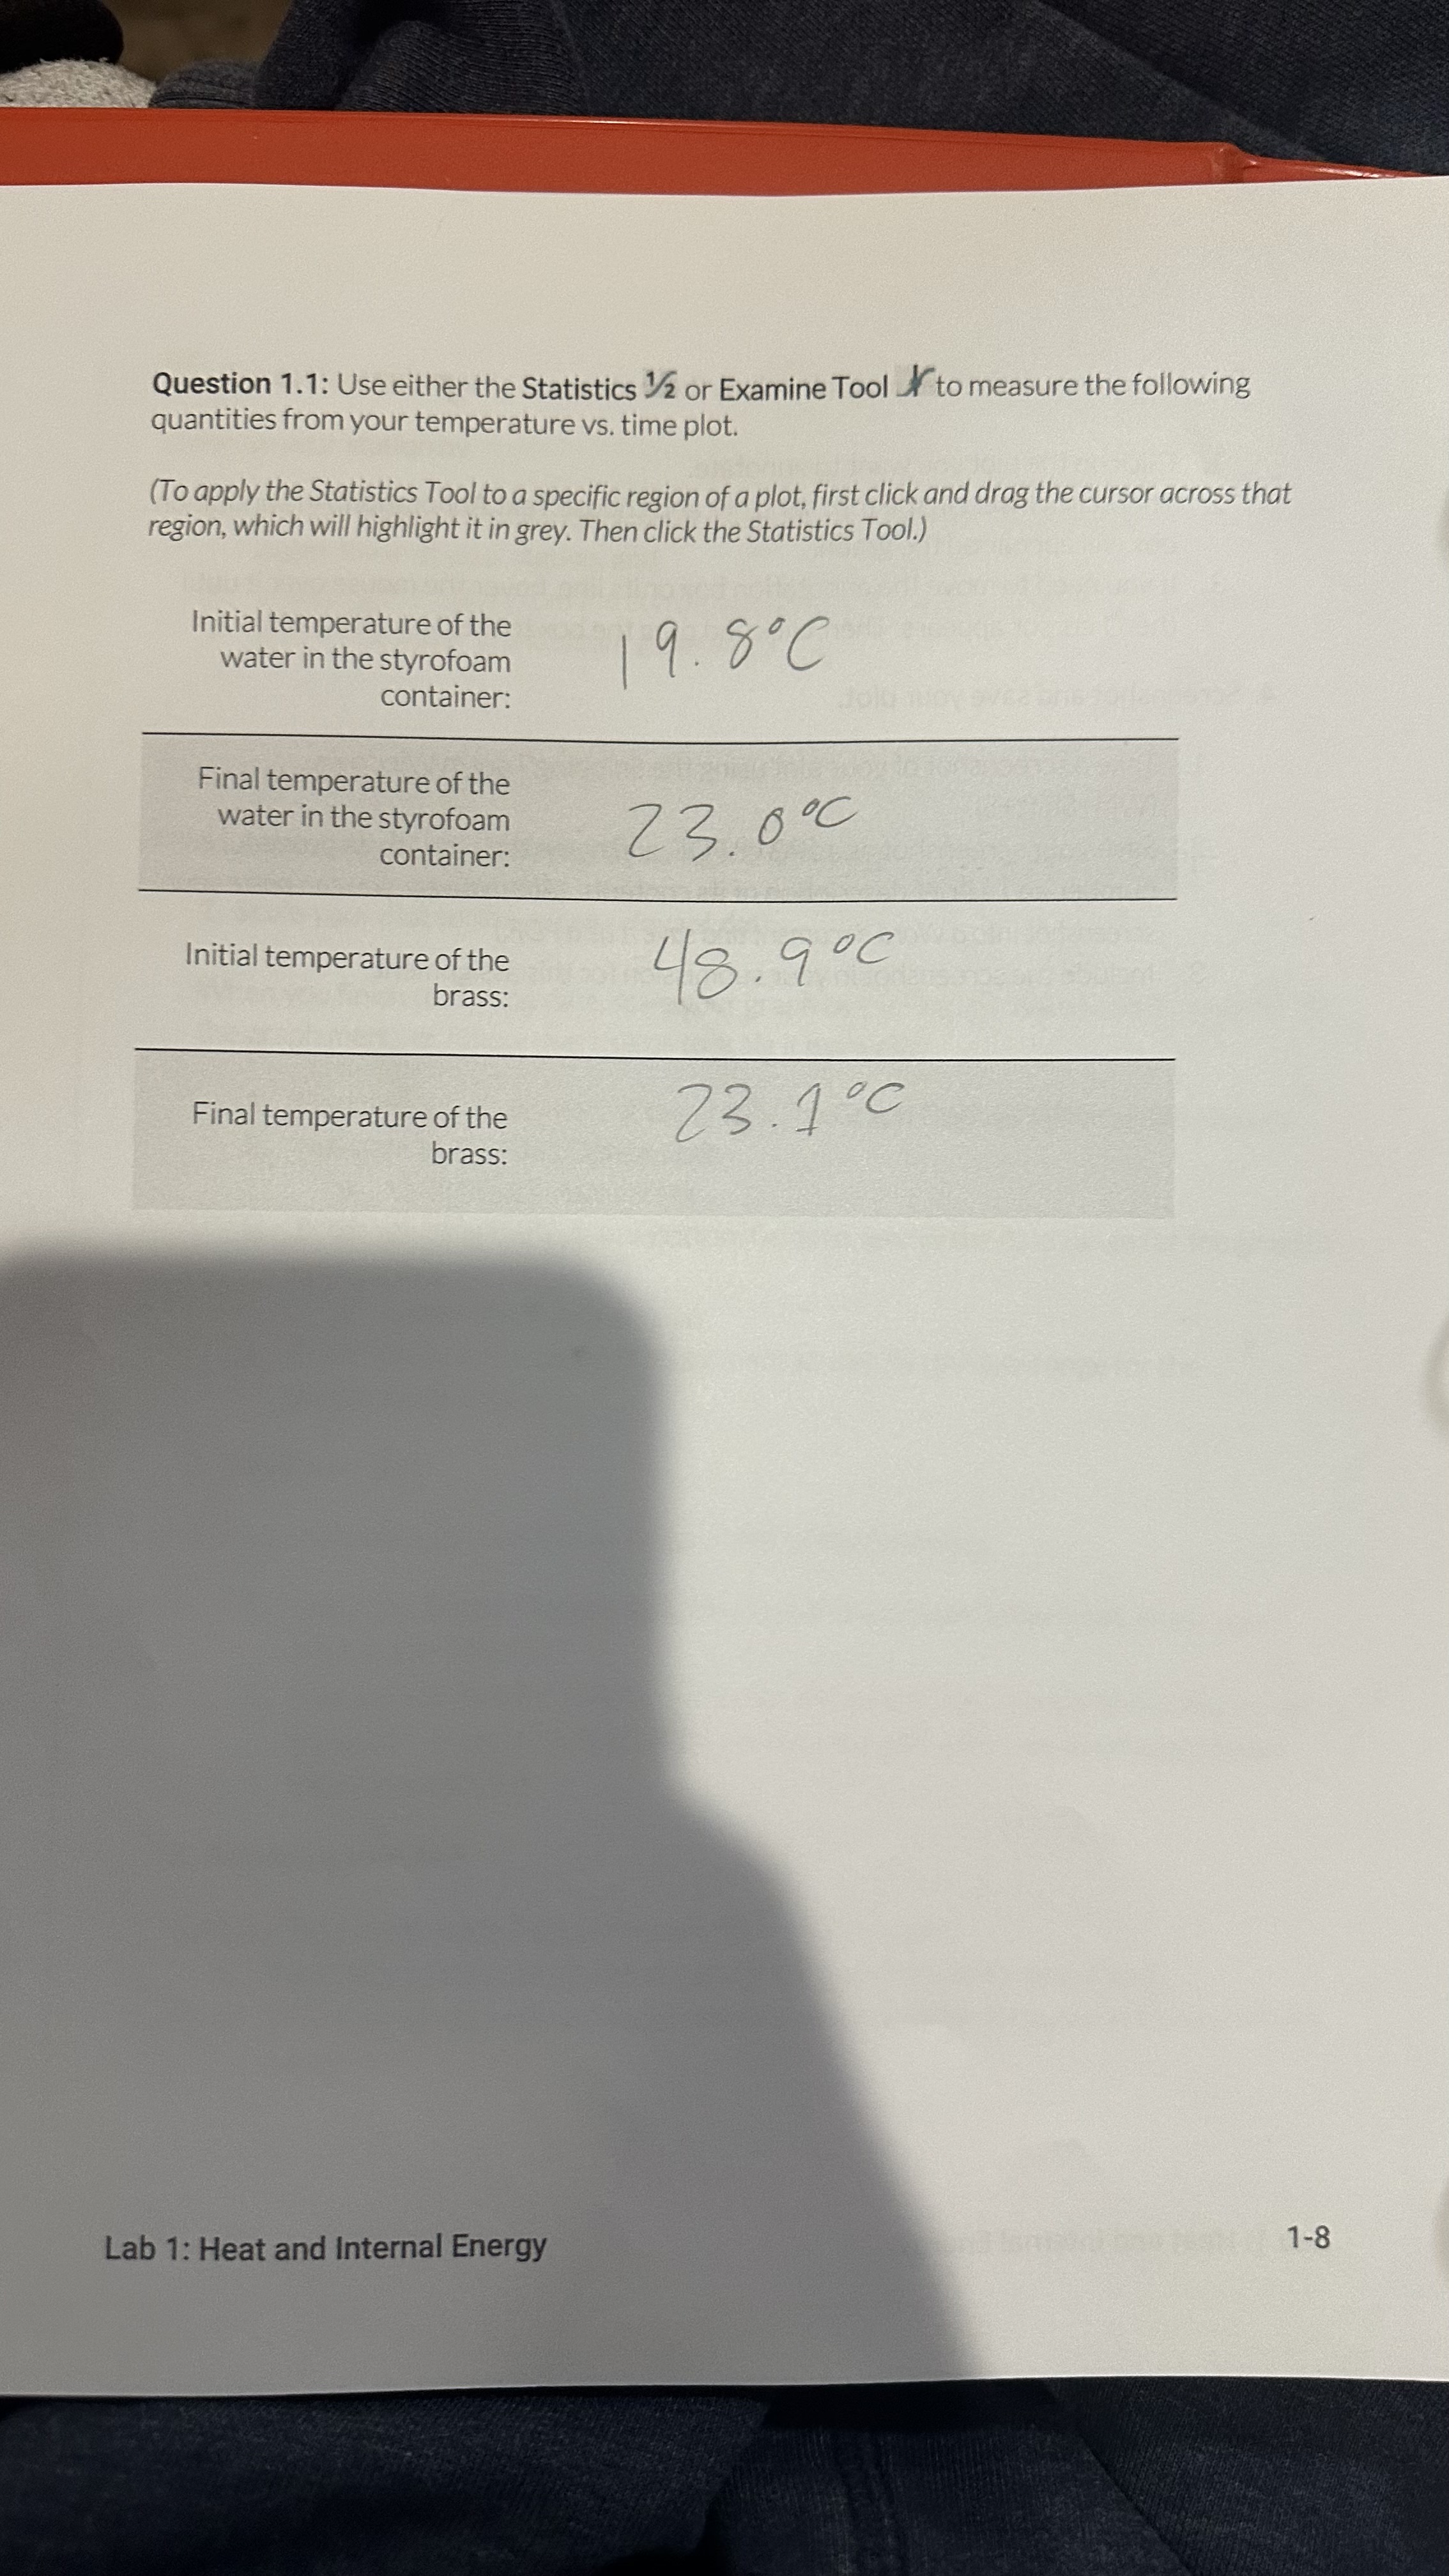 Question 1.1: Use either the Statistics ½ or Examine Tool to measure the following
quantities from your temperature vs. time plot.
(To apply the Statistics Tool to a specific region of a plot, first click and drag the cursor across that
region, which will highlight it in grey. Then click the Statistics Tool.)
Initial temperature of the
water in the styrofoam
container:
19.8°C
Final temperature of the
water in the styrofoam
container:
23.0°C
Initial temperature of the
brass:
48.9°C
Final temperature of the
brass:
23.1°C
Lab 1: Heat and Internal Energy
1-8